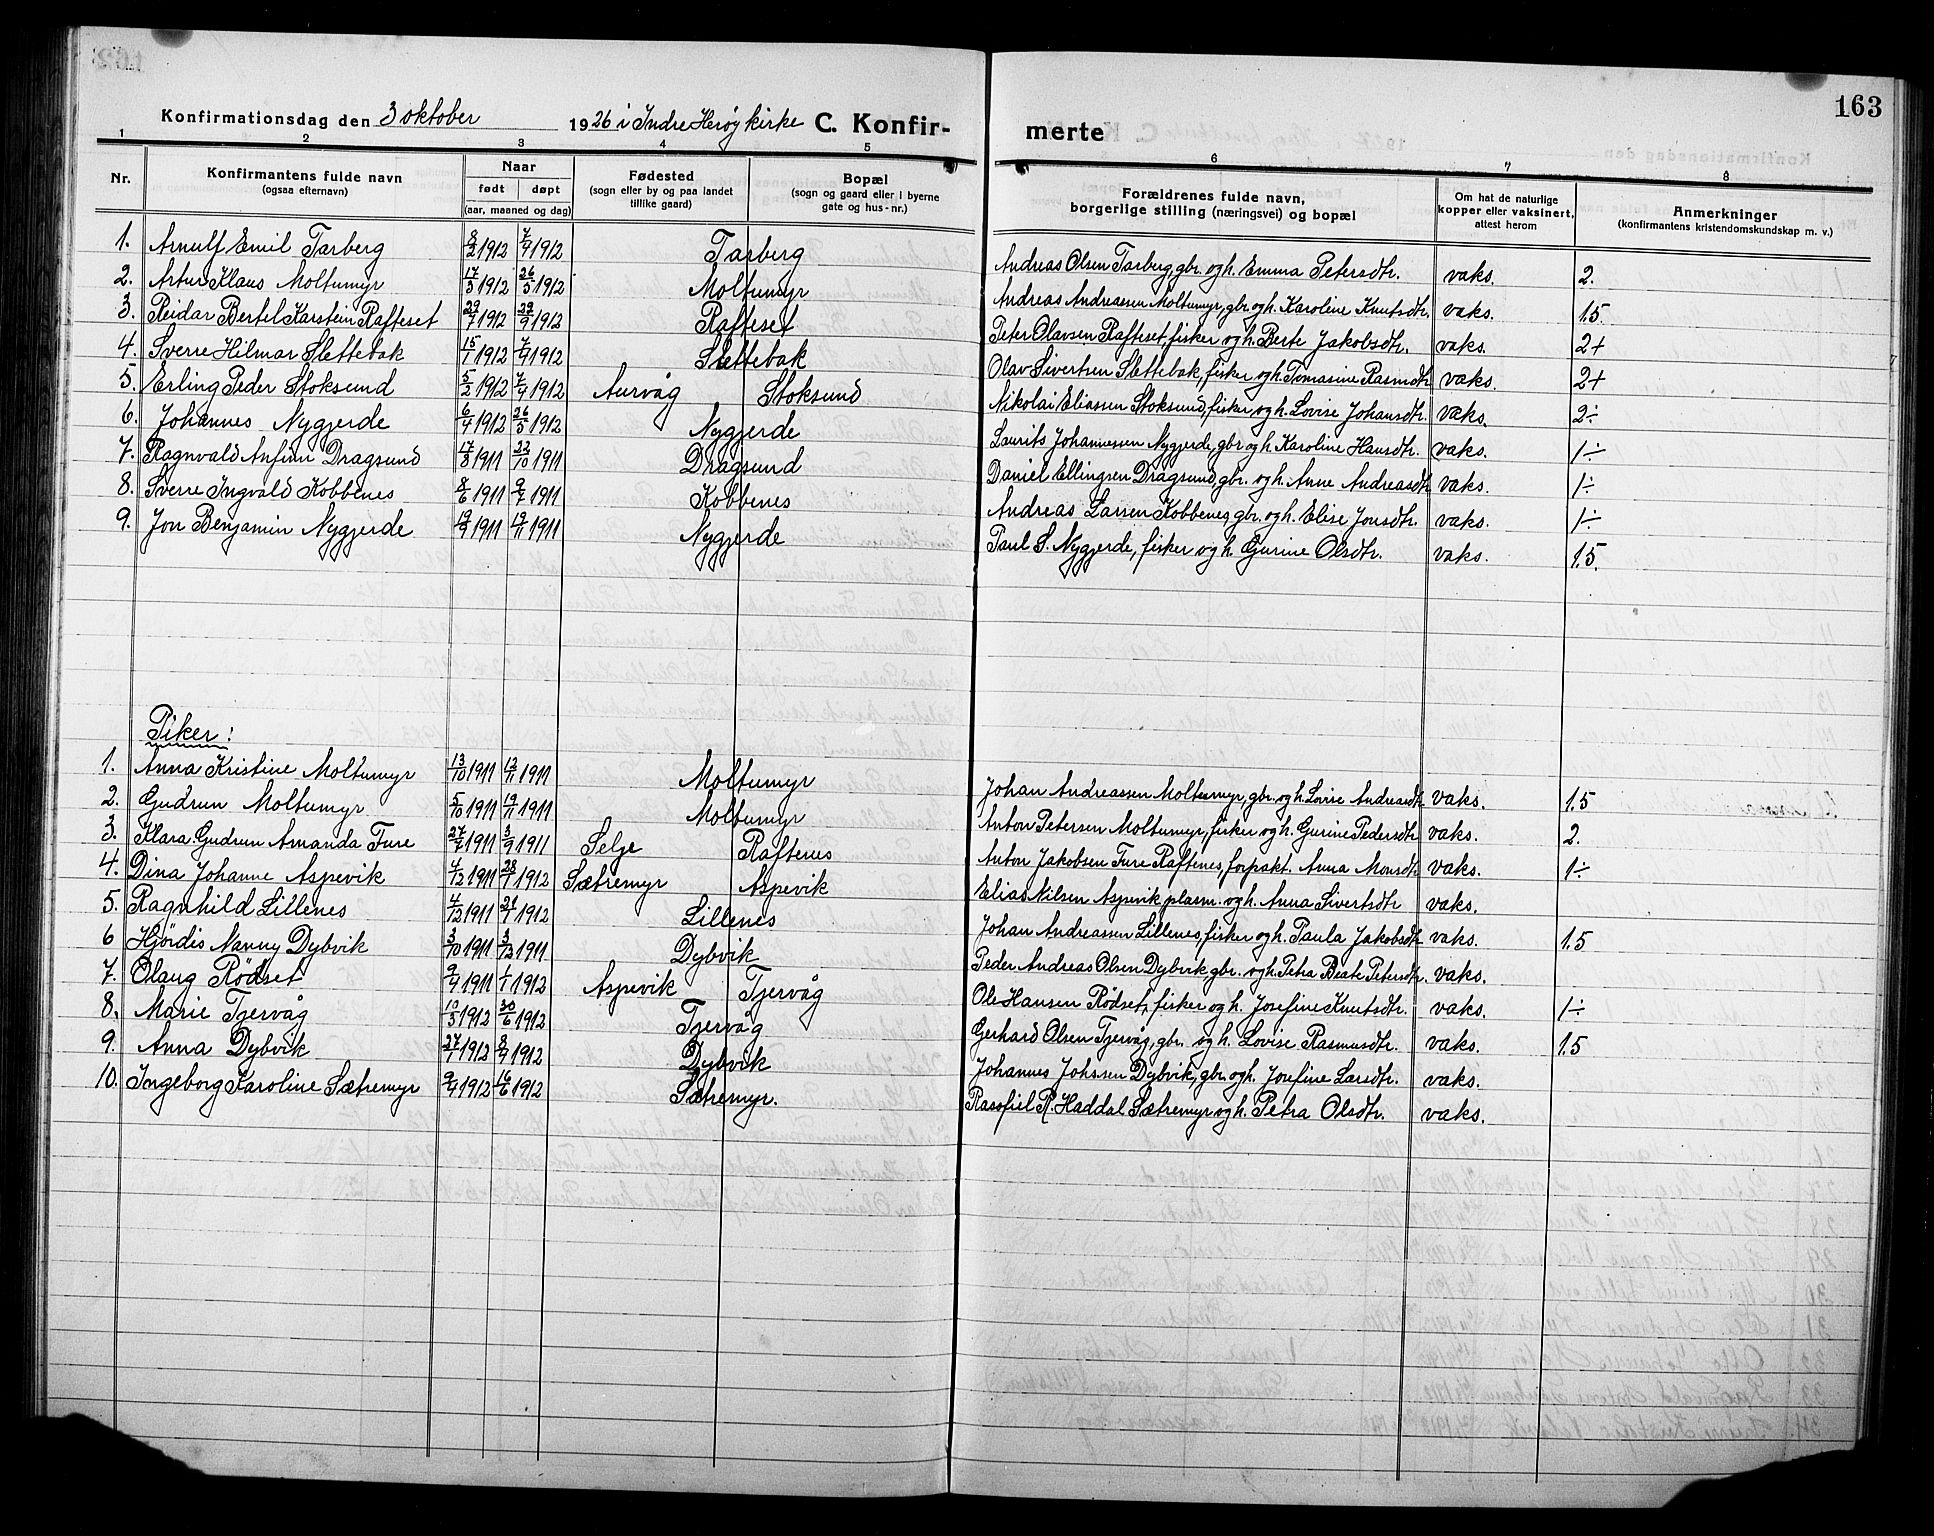 163
Konfirmationsdag den 3 oktober 1926 i Indre Herøy kirke C. Konfirmerte
1 2 3 4 5 6 7 8
Nr. Konfirmantens fulde navn (ogsaa efternavn) Naar født døpt (aar, maaned og dag) Fødested (sogn eller by og paa landet tillike gaard) Bopæl (sogn og gaard eller i byerne gate og hus-nr.) Forældrenes fulde navn, borgerlige stilling (næringsvei) og bopæl Om hat de naturlige kopper eller vaksinert, attest herom Anmerkninger (konfirmantens kristendomskundskap m. v.)
1. Arnulf Emil Tarberg 8/2 1912 7/9 1912 Tarberg Andreas Olsen Tarberg, gbr. og h. Emma Petersdtr. vaks. 2.
2. Artur Klaus Moltumyr 17/3 1912 26/5 1912 Moltumyr Andreas Andreassen Moltumyr, gbr. og h. Karoline Knutsdtr. vaks. 1.5.
3. Reidar Bertel Karstein Rafteset 29/7 1912 22/9 1912 Rafteset Peter Olavsen Rafteset, fisker og h. Berte Jakobsdtr. vaks. 2+
4. Sverre Hilmar Slettebak 15/1 1912 7/9 1912 Slettebak Olav Sivertsen Slettebak, fisker og h. Tomasine Rasmdtr. vaks. 2+
5. Erling Peder Stoksund 5/2 1912 7/4 1912 Aurvåg Stoksund Nikolai Eliassen Stoksund, fisker og h. Lovise Johansdtr. vaks. 2÷
6. Johannes Nygjerde 6/4 1912 26/5 1912 Nygjerde Laurits Johannessen Nygjerde, gbr og h. Karoline Hansdtr. vaks. 1÷
7. Ragnvald Anfinn Dragsund 17/8 1911 22/10 1911 Dragsund Daniel Ellingsen Dragsund, gbr. og h. Anne Andreasdtr vaks. 1÷
8. Sverre Ingvald Kobbenes 8/6 1911 9/7 1911 Kobbenes Andreas Larsen Kobbenes, gbr. og h. Elise Jonsdtr. vaks. 1÷
9. Jon Benjamin Nygjerde 19/9 1911 19/11 1911 Nygjerde Paul S. Nygjerde, fisker og h. Gurine Olsdtr. vaks. 1.5.
Piker:
1. Anna Kristine Moltumyr 13/10 1911 12/11 1911 Moltumyr Johan Andreassen Moltumyr, gbr. og h. Lovise Andreasdtr vaks. 1.5
2. Gudrun Moltumyr 5/10 1911 19/11 1911 Moltumyr Anton Petersen Moltumyr, fisker og h. Gurine Pedersdtr vaks. 2.
3. Klara Gudrun Amanda Ture 27/7 1911 3/9 1911 Selje Raftenes Anton Jakobsen Ture Raftenes, forpakt. Anna Monsdtr vaks. 1÷
4. Dina Johanne Aspevik 4/12 1911 28/1 1912 Sætremyr Aspevik Elias Nilsen Aspevik plasm. og h. Anna Sivertsdtr vaks.
5. Ragnhild Lillenes 4/12 1911 21/1 1912 Lillenes Johan Andreassen Lillenes, fisker og h. Paula Jakobsdtr vaks. 1.5
6 Hjördis Nanny Dybvik 3/10 1911 3/12 1911 Dybvik Peder Andreas Olsen Dybvik, gbr. og h. Petra Beate Petersdtr vaks.
7. Olaug Rödset 9/9 1911 1/1 1912 Aspevik Tjervåg Ole Hansen Rödset, fisker og h. Josefine Knutsdtr. vaks. 1÷
8. Marie Tjervåg 10/5 1912 30/6 1912 Tjervåg Gerhard Olsen Tjervåg, gbr. og h. Lovise Rasmusdtr. vaks. 1.5
9. Anna Dybvik 27/1 1912 8/9 1912 Dybvik Johannes Johssen Dybvik, gbr. og h. Josefine Larsdtr. vaks.
10. Ingeborg Karoline Sætremyr 9/4 1912 16/6 1912 Sætremyr. Rasofiel R. Haddal Sætremyr og h. Petra Olsdtr. vaks.